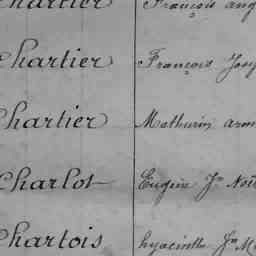 Chartier François
Chartier François
Chartier Mathurin
Charlot Eugène Jn
Chartois hyacinthe Jn